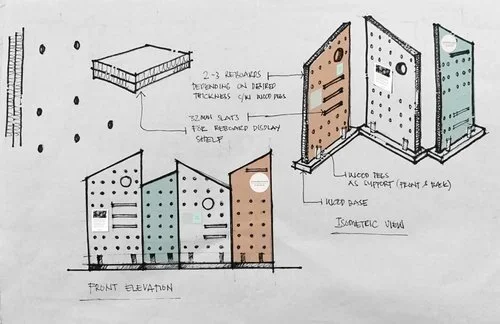 2-3 REBOARDS
DEPENDING ON DESIRED
THICKNESS C/W WOOD PEGS
32MM SLATS
FOR REBOARD DISPLAY
SHELF
WOOD PEGS
AS SUPPORT (FRONT & BACK)
WOOD BASE
ISOMETRIC VIEW
FRONT ELEVATION